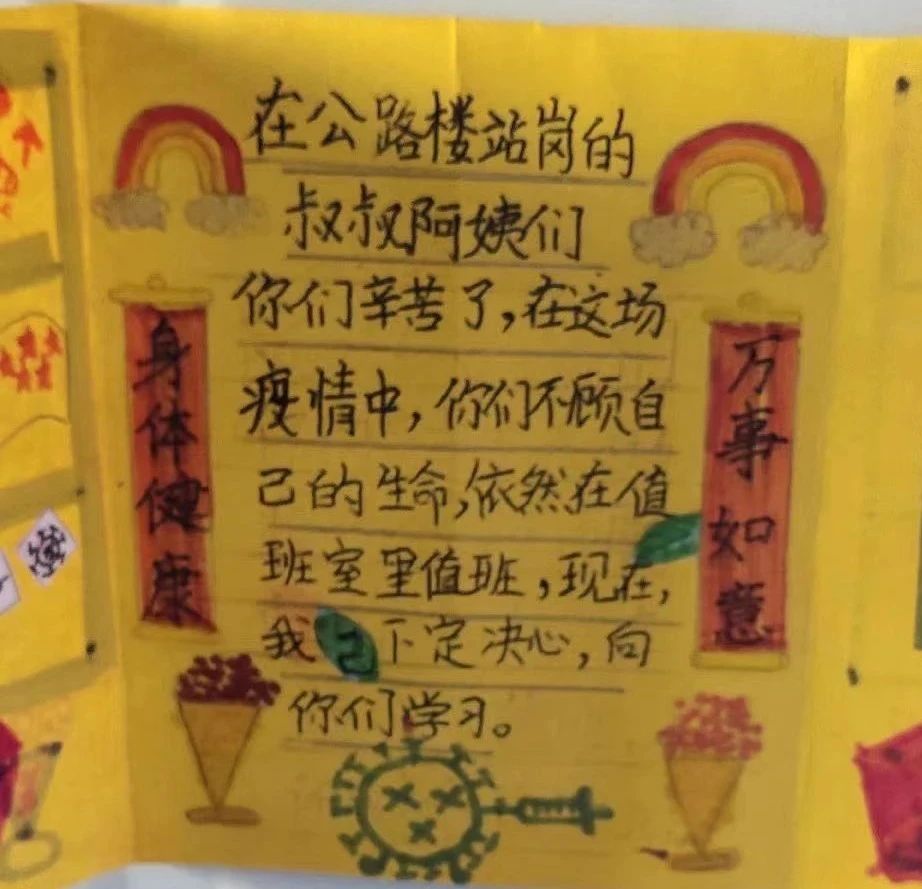 在公路楼站岗的
叔叔阿姨们
你们辛苦了,在这场
疫情中,你们不顾自
己的生命,依然在值
班室里值班,现在,
我已下定决心,向
你们学习。
身体健康
万事如意